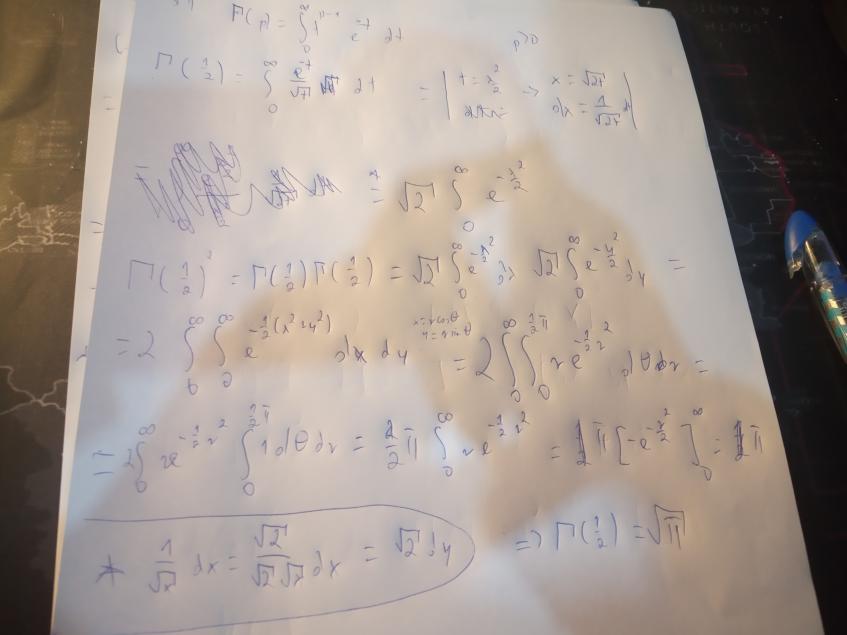 Γ(p) = ∫₀^∞ t^{p-1} e^{-t} dt p>0
Γ(1/2) = ∫₀^∞ e^{-t}/√t dt = | t = x²/2 → x = √2t dx = 1/√2t dt |
=* √2 ∫₀^∞ e^{-x²/2}
Γ(1/2)² = Γ(1/2)Γ(1/2) = √2 ∫₀^∞ e^{-x²/2} dx √2 ∫₀^∞ e^{-y²/2} dy =
= 2 ∫₀^∞ ∫₀^∞ e^{-1/2(x²+y²)} dx dy x=rcosθ y=rsinθ = 2 ∫₀^∞ ∫₀^{1/2π} r e^{-1/2 r²} dθ dr =
= 2 ∫₀^∞ r e^{-1/2 r²} ∫₀^{1/2π} 1 dθ dr = 2/2 π ∫₀^∞ r e^{-1/2 r²} = 1π [-e^{-r²/2}]₀^∞ = 1π
* 1/√x dx = √2/√2√x dx = √2 dy ⇒ Γ(1/2) = √π